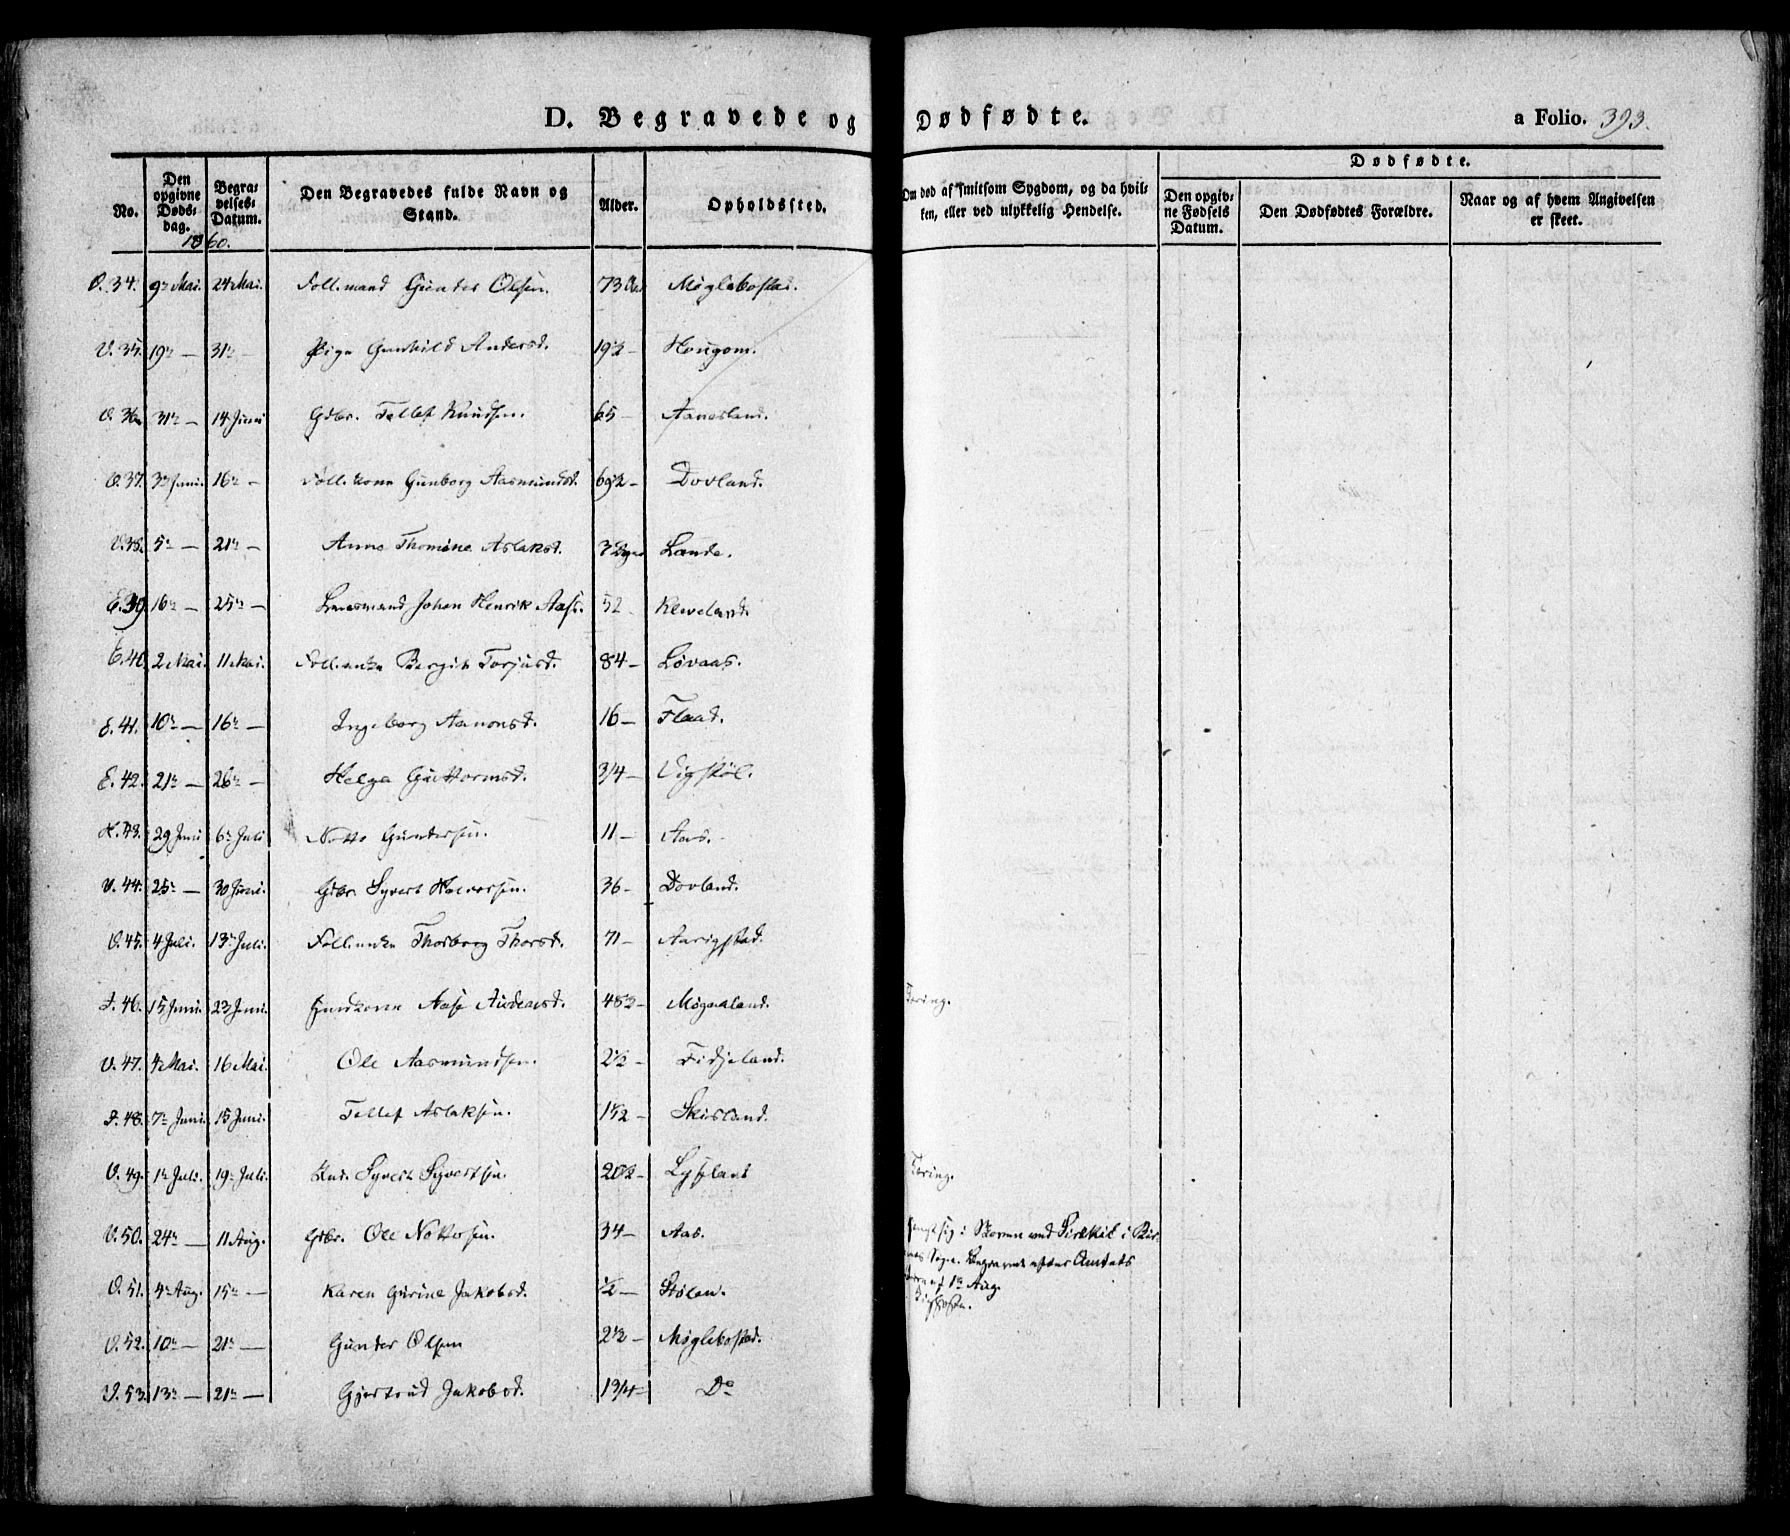 D. Begravede og Dødfødte. a Folio. 393.
No. Den opgivne Døds-dag. Begra-velses-Datum. Den Begravedes fulde Navn og Stand. Alder. Opholdssted. Om død af smitsom Sygdom, og da hvil-ken, eller ved ulykkelig Hendelse. Dødfødte. Den opgiv-ne Fødsels Datum. Den Dødfødtes Forældre. Naar og af hvem Angivelsen er skeet.
1860.
V. 34. 9de Mai. 24 Mai. Follmand Gunder Olsen. 73 Møglebostad.
V. 35. 19de — 31te — Pige Gunhild Andersd. 19½ — Hougom.
V. 36. 31te — 14 Juni Gdbr. Tellef Knudsen. 65 — Aanesland.
V. 37. 3die Juni. 16de — Follkone Gunborg Aasmundsd. 69½ — Dovland.
V. 38. 5te — 21de — Anne Thomine Aslaksd. 3 Lande.
E. 39. 16de — 25de — Lensmand Johan Henrik Aas. 52 — Kleveland.
E. 40. 2 Mai. 11 Mai. Follenke Bergit Torjusd. 84 — Løvaas.
E. 41. 10de — 16de — Ingeborg Aanonsd. 16 — Flaad.
E. 42. 21de — 26de — Helga Guttormsd. 3/4 — Vigstøl.
H. 43. 29 Juni 6te Juli Notto Gundersen. 11 — Aas.
V. 44. 25de — 30 Juni. Gdbr. Syvert Halvorsen. 36 — Dovland.
V. 45. 4 Juli. 13de Juli. Follenke Thorborg Thorsd. 71 — Aarigstad.
I. 46. 15 Juni. 23 Juni. Aase Andersd. 48½ — Møgaaland. Tæring.
V. 47. 4 Mai. 16 Mai. Ole Aasmundsen. 2½ — Fidjeland.
I. 48. 7de Juni. 15 Juni. Tellef Aslaksen. 1½ — Skisland.
V. 49. 1te Juli. 19de Juli. Syvert Syvertsen. 20½ — Lysland Tæring.
V. 50. 24de — 11 Aug. Gdbr. Ole Nottosen. 34 — Aas. sig i Skoven ved i
Sogn. Begravet efter Amtets
af 1te Aug.
V. 51. 4de Aug. 15de — Karen Gurine Jakobsd. ½ — Stølen.
V. 52. 10de — 21de — Gunder Olsen 2½ — Møglebostad.
V. 53. 13de — 21de — Gjertrud Jakobsd. 1 3/4 — Do